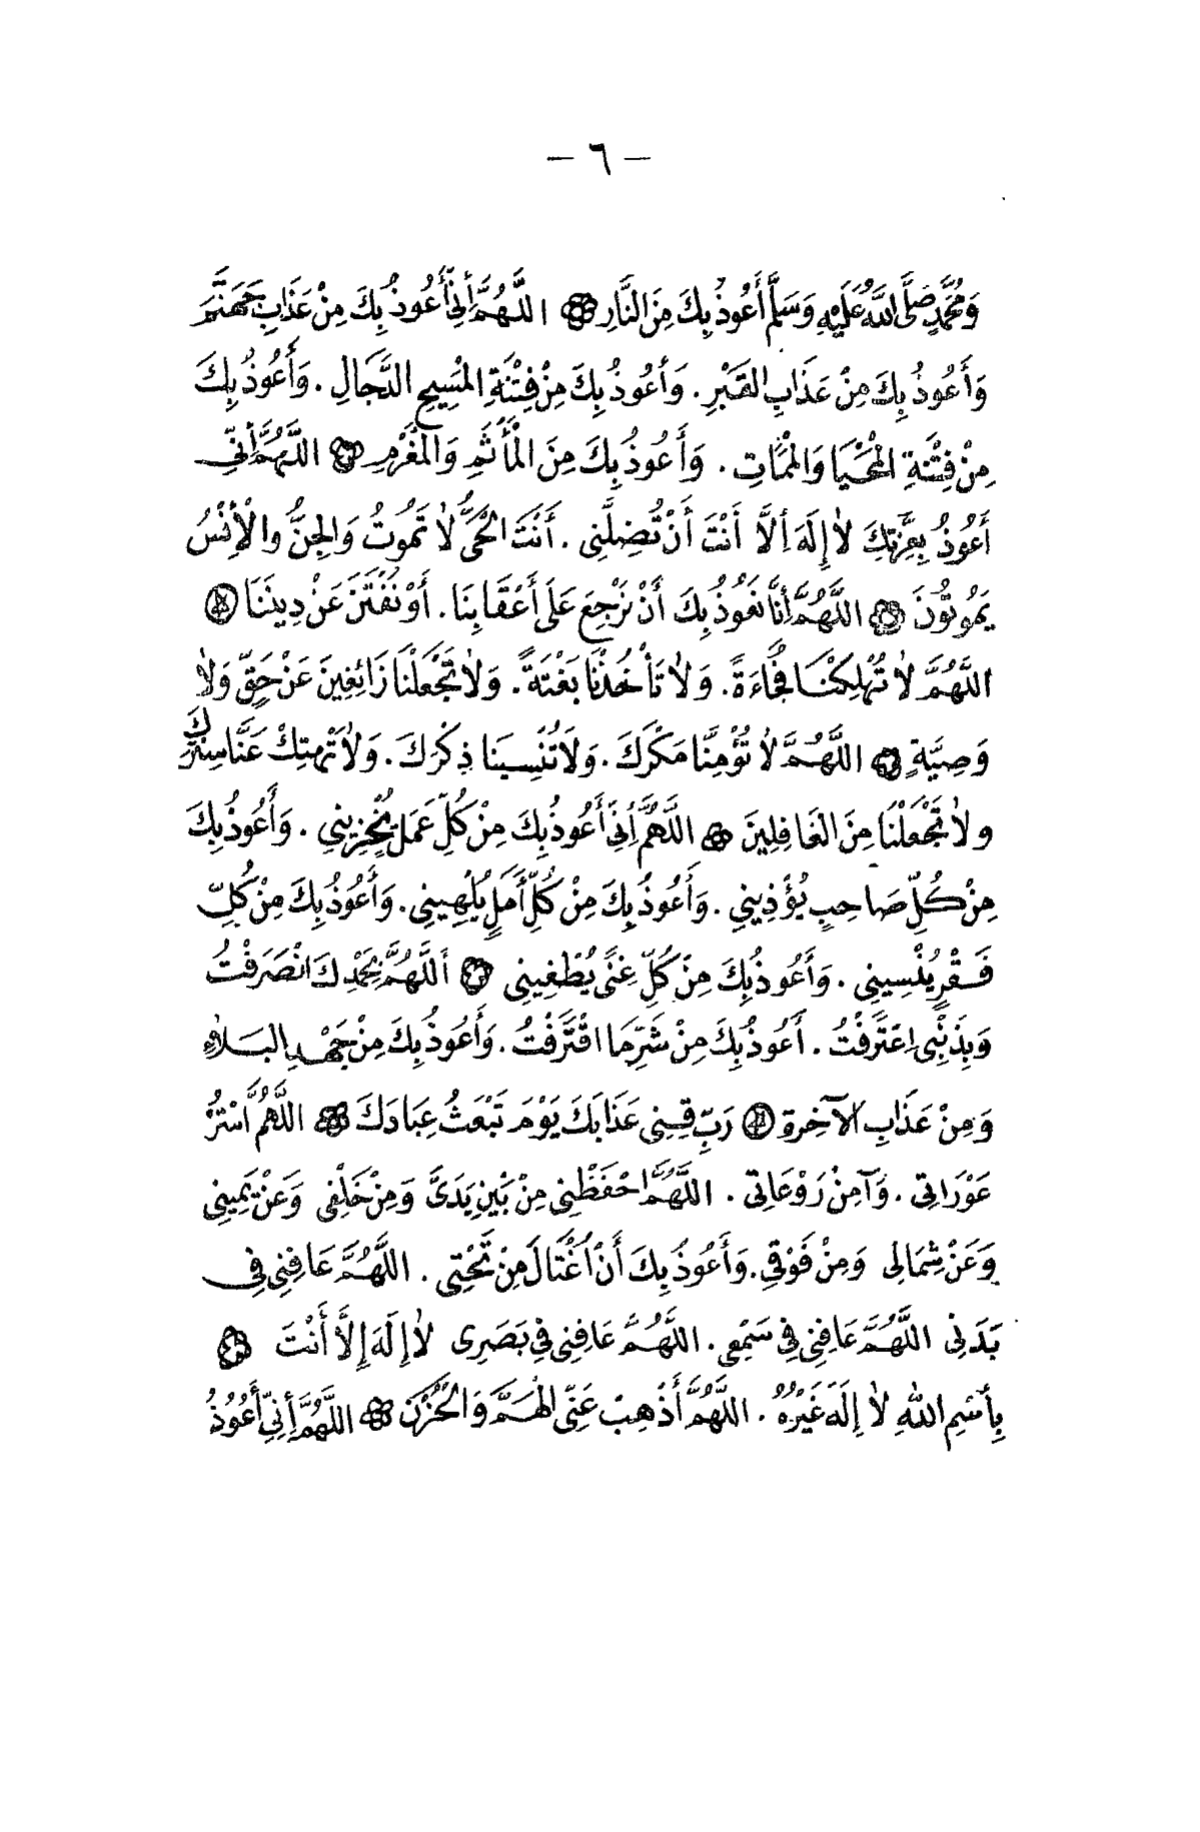 — ٦ —
وَمُحَمَّدٍ صَلَّى اللَّهُ عَلَيْهِ وَسَلَّمَ أَعُوذُ بِكَ مِنَ النَّارِ ۞ اللَّهُمَّ إِنِّي أَعُوذُ بِكَ مِنْ عَذَابِ جَهَنَّمَ
وَأَعُوذُ بِكَ مِنْ عَذَابِ القَبْرِ . وَأَعُوذُ بِكَ مِنْ فِتْنَةِ المَسِيحِ الدَّجَالِ . وَأَعُوذُ بِكَ
مِنْ فِتْنَةِ الْمُحْيَا وَالْمَمَاتِ . وَأَعُوذُ بِكَ مِنَ الْمَأْثَمِ وَالْمَغْرَمِ ۞ اللَّهُمَّ إِنِّي
أَعُوذُ بِعِزَّتِكَ لاَ إِلَهَ إِلاَّ أَنْتَ أَنْ تُضِلَّنِى . أَنْتَ الْحَىُّ لاَ تَمُوتُ وَالجِنُّ والْأِنْسُ
يَمُوتُونَ ۞ اللَّهُمَّ إِنَّا نَعُوذُ بِكَ أَنْ نَرْجِعَ عَلَى أَعْقَابِنَا . أَوْ نُفْتَنَ عَنْ دِينِنَا ۞
اللَّهُمَّ لاَ تُهْلِكْنَا فُجَاءَةً . وَلاَ تَأْخُذْنَا بَغْتَةً . وَلاَ تَجْعَلْنَا زَائِغِينَ عَنْ حَقٍّ وَلاَ
وَصِيَّةٍ ۞ اللَّهُمَّ لاَ تُؤْمِنَّا مَكْرَكَ . وَلاَ تُنْسِيَنَا ذِكْرَكَ . وَلاَ تَهْتِكْ عَنَّا سِتْرَكَ
ولاَ تَجْعَلْنَا مِنَ الغَافِلِينَ ۞ اللَّهُمَّ إِنِّي أَعُوذُ بِكَ مِنْ كُلِّ عَمَلٍ يُخْزِينِي . وَأَعُوذُ بِكَ
مِنْ كُلِّ صَاحِبٍ يُؤْذِينِي . وَأَعُوذُ بِكَ مِنْ كُلِّ أَمَلٍ يُلْهِينِي . وَأَعُوذُ بِكَ مِنْ كُلِّ
فَقْرٍ يُنْسِينِي . وَأَعُوذُ بِكَ مِنْ كُلِّ غِنًى يُطْغِينِي ۞ أللَّهُمَّ بِحَمْدِكَ انْصَرَفْتُ
وَبِذَنْبِى اعْتَرَفْتُ . أَعُوذُ بِكَ مِنْ شَرِّ مَا اقْتَرَفْتُ . وَأَعُوذُ بِكَ مِنْ جَهْدِ البَلاَءِ
وَمِنْ عَذَابِ الآخِرةِ ۞ رَبِّ قِنِى عَذَابَكَ يَوْمَ تَبْعَثُ عِبَادَكَ ۞ اللَّهُمَّ اسْتُرْ
عَوْرَاتِي . وَآمِنْ رَوْعَاتِي . اللَّهُمَّ احْفَظْنِي مِنْ بَيْنِ يَدَىَّ وَمِنْ خَلْفِي وَعَنْ يَمِينِي
وَعَنْ شِمَالِى وَمِنْ فَوْقِي . وَأَعُوذُ بِكَ أَنْ أُغْتَالَ مِنْ تَحْتِي . اللَّهُمَّ عَافِنِى فِي
بَدَنِى اللَّهُمَّ عَافِنِى فِي سَمْعِي . اللَّهُمَّ عَافِنِى فِي بَصَرِى لاَ إِلَهَ إِلاَّ أَنْتَ ۞
بِأسْمِ اللهِ لاَ إِلَهَ غَيْرُهُ . اللَّهُمَّ أَذْهِبْ عَنِّى الهَمَّ وَالحُزْنَ ۞ اللَّهُمَّ إِنِّي أَعُوذُ